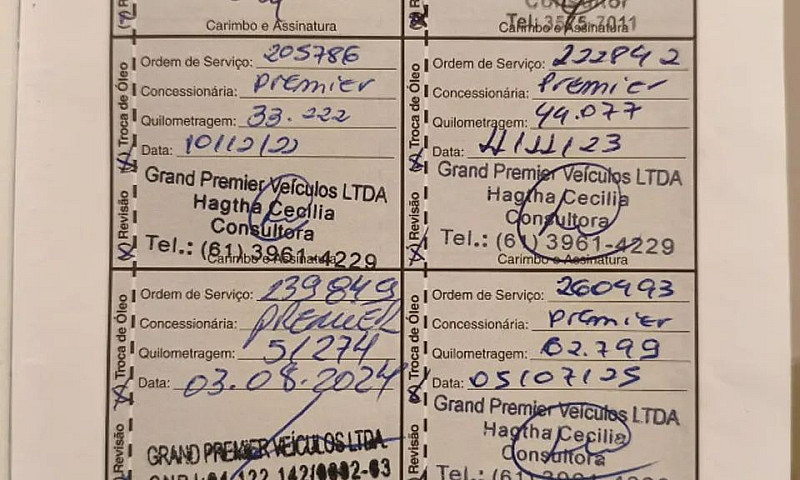 Carimbo e Assinatura
Consultor
Tel: 3575-7011
Carimbo e Assinatura
Revisão Troca de Óleo
Ordem de Serviço: 205786
Concessionária: Premier
Quilometragem: 33.222
Data: 10/12/22
Grand Premier Veículos LTDA
Hagtha Cecilia
Consultora
Tel.: (61) 3961-4229
Carimbo e Assinatura
Revisão Troca de Óleo
Ordem de Serviço: 222842
Concessionária: Premier
Quilometragem: 44.077
Data: 11/11/23
Grand Premier Veículos LTDA
Hagtha Cecilia
Consultora
Tel.: (61) 3961-4229
Carimbo e Assinatura
Revisão Troca de Óleo
Ordem de Serviço: 239849
Concessionária: PREMIER
Quilometragem: 51274
Data: 03.08.2024
GRAND PREMIER VEÍCULOS LTDA
Revisão Troca de Óleo
Ordem de Serviço: 260993
Concessionária: Premier
Quilometragem: 62.799
Data: 05/07/25
Grand Premier Veículos LTDA
Hagtha Cecilia
Consultora